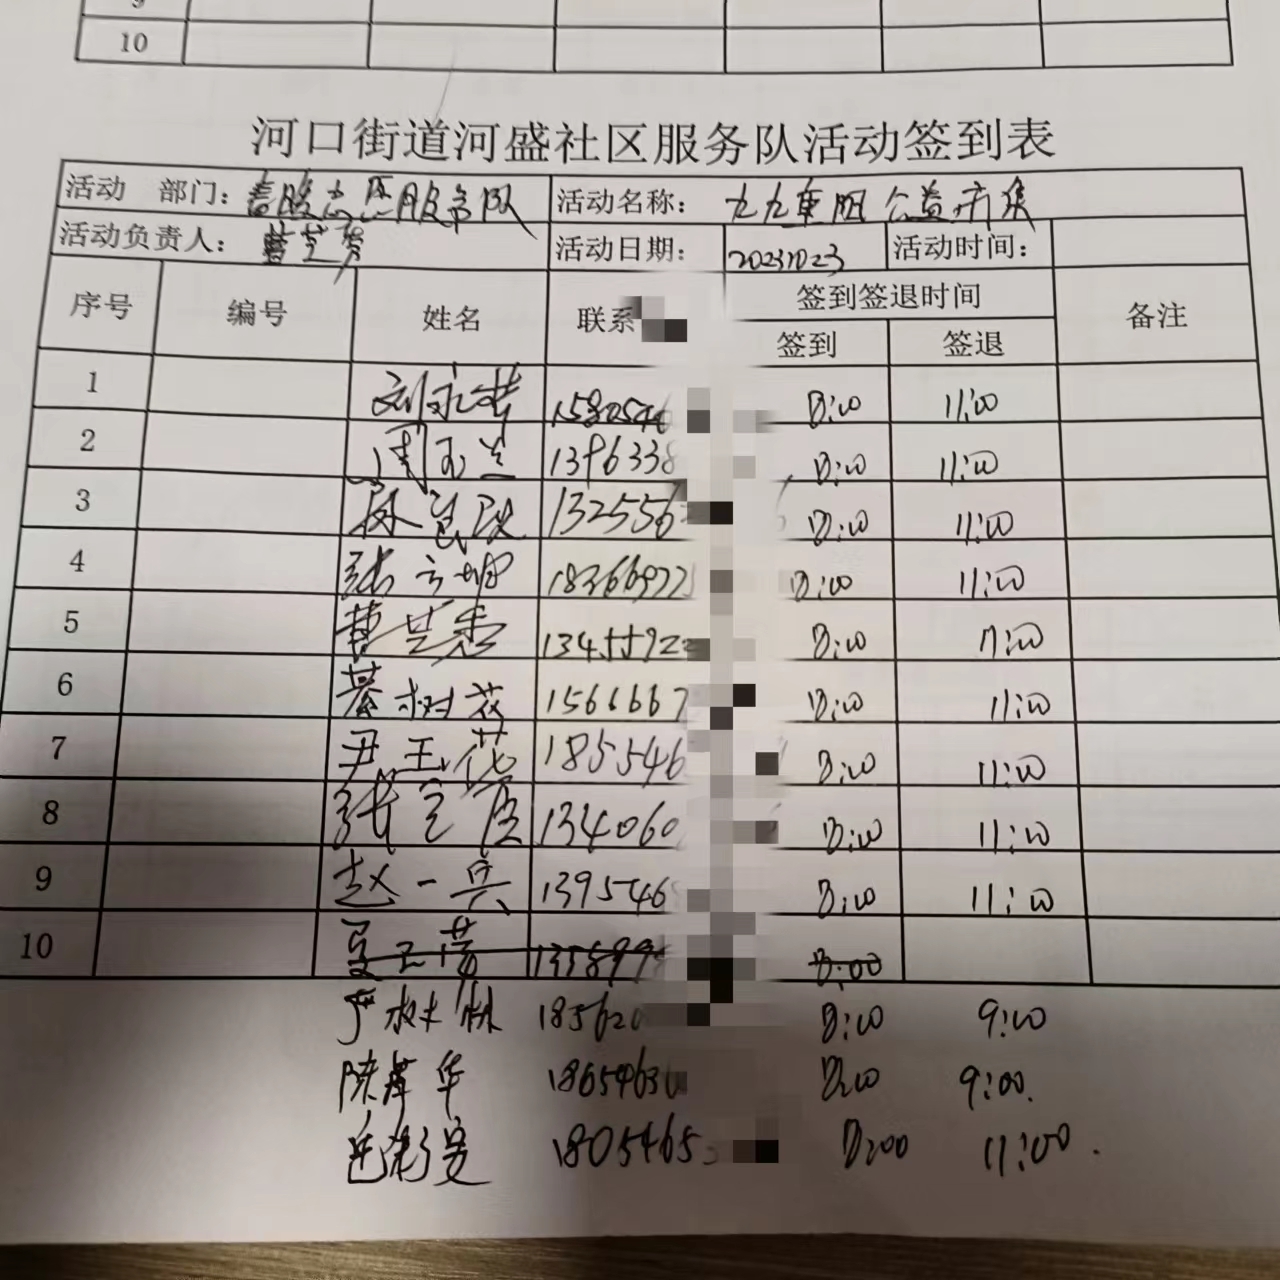 10
河口街道河盛社区服务队活动签到表
活动 部门： 服务队 活动名称： 九九重阳公益市集
活动负责人： 活动日期： 20231023 活动时间：
序号 编号 姓名 联系 签到签退时间 备注
签到 签退
1 1580546 8:00 11:00
2 周玉兰 1396338 8:00 11:00
3 1325562 8:00 11:00
4 18366977 8:00 11:00
5 13455922 8:00 11:00
6 綦树花 1566667 8:00 11:00
7 尹玉花 1855462 8:00 11:00
8 134060 8:00 11:00
9 赵一兵 1395468 8:00 11:00
10 1358994 8:00
严树林 185620 8:00 9:00
陈萍华 1865463 8:00 9:00.
1805465 8:00 11:00.